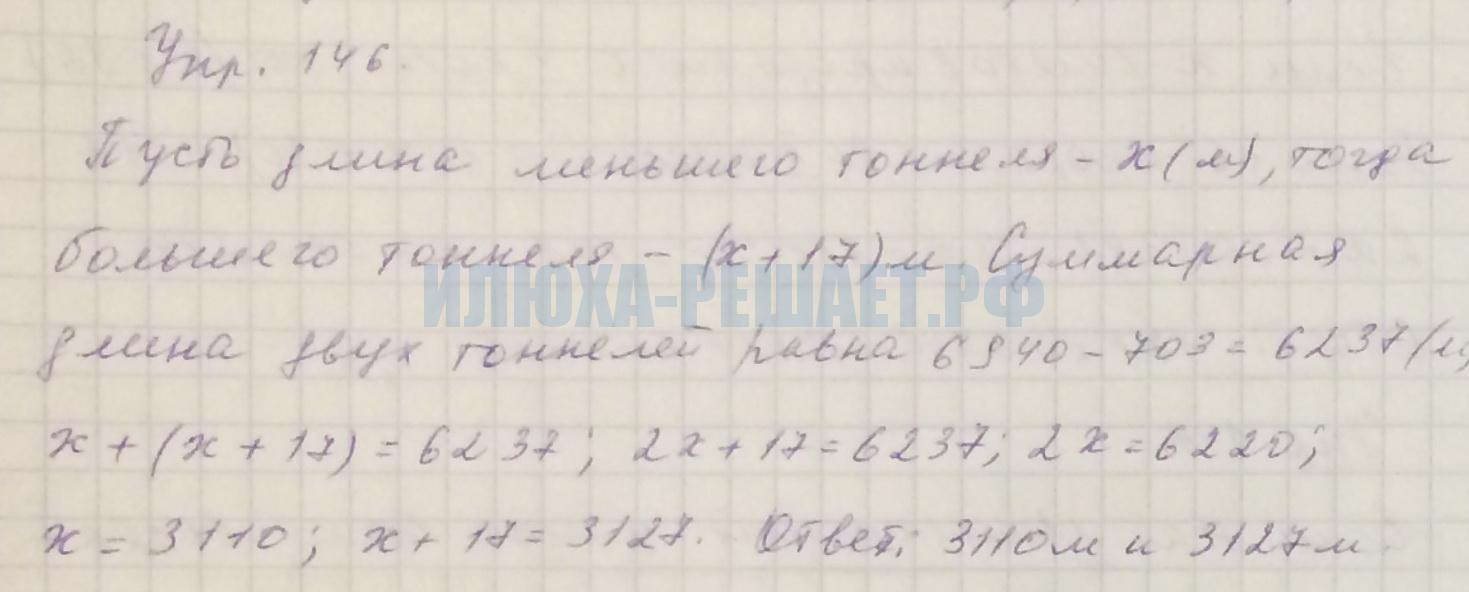 Упр. 146.
Пусть длина меньшего тоннеля - x (м), тогда
большего тоннеля - (x + 17) м. Суммарная
ИЛЮХА-РЕШАЕТ.РФ
длина двух тоннелей равна 6940 - 703 = 6237 (м)
x + (x + 17) = 6237; 2x + 17 = 6237; 2x = 6220;
x = 3110; x + 17 = 3127. Ответ: 3110 м и 3127 м.